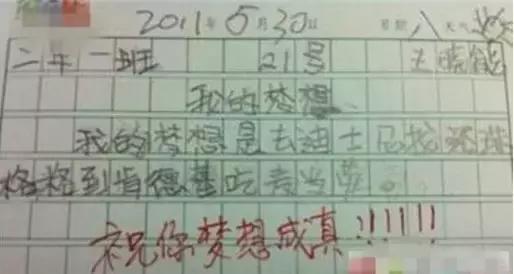 2011年5月30日 星期八 天气
二年一班 21号 王晓
我的梦想
我的梦想是去迪士尼找还珠
格格到肯德基吃麦当劳。
祝你梦想成真!!!!!!!